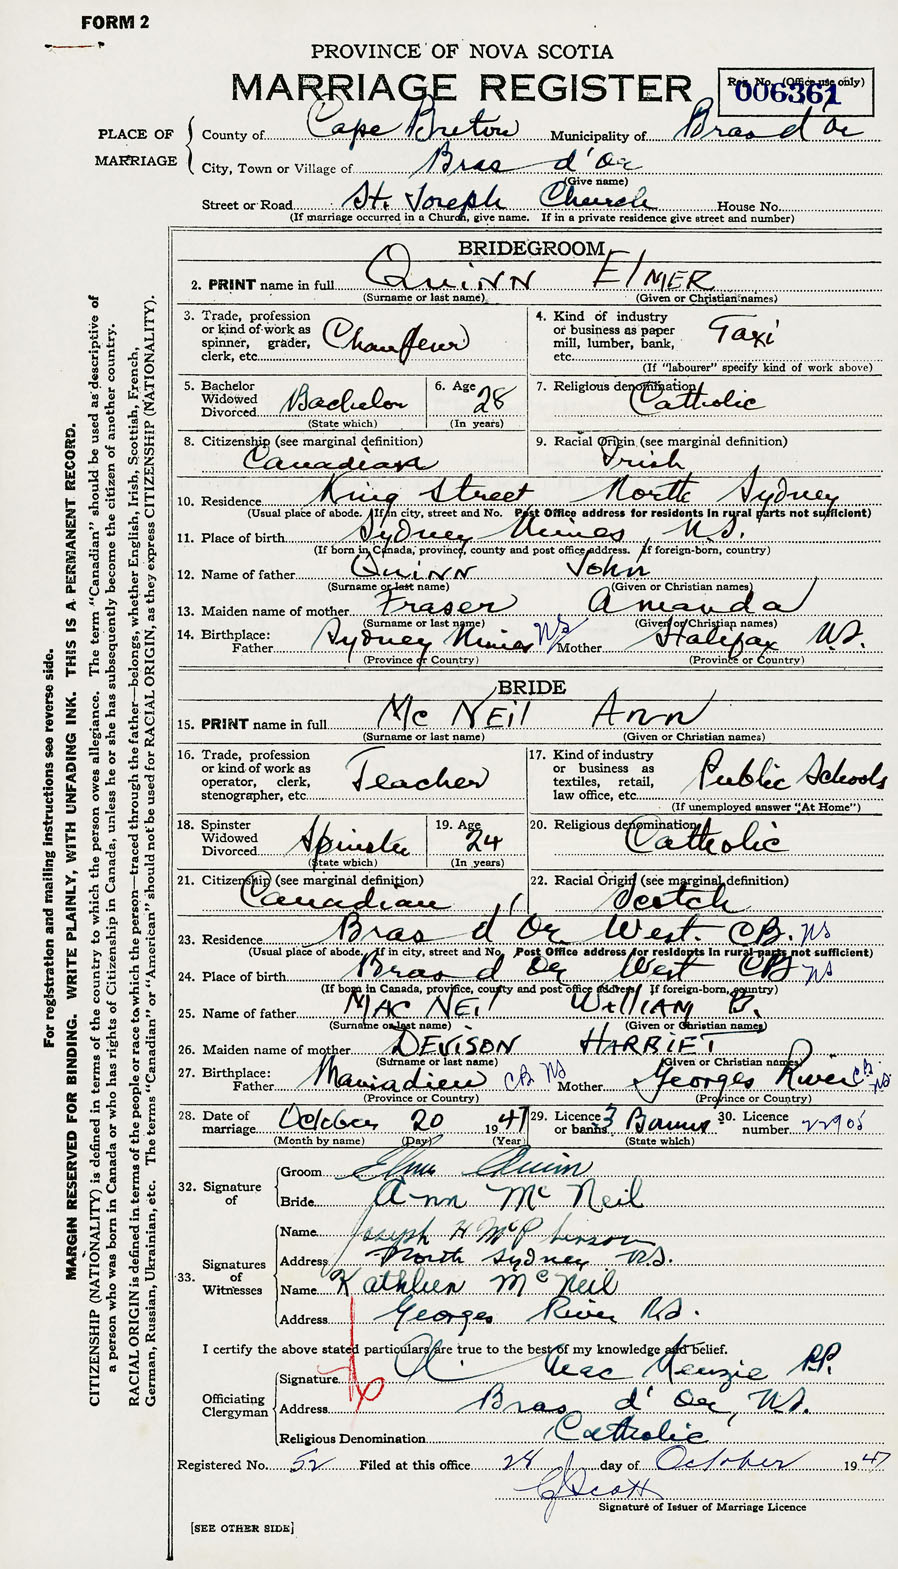 FORM 2
PROVINCE OF NOVA SCOTIA
MARRIAGE REGISTER
Reg. No. (Office use only)
006361
PLACE OF MARRIAGE
County of Cape Breton Municipality of Bras d'Or
City, Town or Village of Bras d'Or
(Give name)
Street or Road St. Joseph Church House No.
(If marriage occurred in a Church, give name. If in a private residence give street and number)
BRIDEGROOM
2. PRINT name in full QUINN ELMER
(Surname or last name) (Given or Christian names)
3. Trade, profession or kind of work as spinner, grader, clerk, etc. Chauffeur
4. Kind of industry or business as paper mill, lumber, bank, etc. Taxi
(If "labourer" specify kind of work above)
5. Bachelor Widowed Divorced Bachelor
(State which)
6. Age 28
(In years)
7. Religious denomination Catholic
8. Citizenship (see marginal definition) Canadian
9. Racial Origin (see marginal definition) Irish
10. Residence King Street North Sydney
(Usual place of abode. If in city, street and No. Post Office address for residents in rural parts not sufficient)
11. Place of birth Sydney Mines N.S.
(If born in Canada, province, county and post office address. If foreign-born, country)
12. Name of father Quinn John
(Surname or last name) (Given or Christian names)
13. Maiden name of mother Fraser Amanda
(Surname or last name) (Given or Christian names)
14. Birthplace: Father Sydney Mines NS Mother Halifax N.S.
(Province or Country) (Province or Country)
BRIDE
15. PRINT name in full Mc NEil Ann
(Surname or last name) (Given or Christian names)
16. Trade, profession or kind of work as operator, clerk, stenographer, etc. Teacher
17. Kind of industry or business as textiles, retail, law office, etc. Public Schools
(If unemployed answer "At Home")
18. Spinster Widowed Divorced Spinster
(State which)
19. Age 24
(In years)
20. Religious denomination Catholic
21. Citizenship (see marginal definition) Canadian
22. Racial Origin (see marginal definition) Scotch
23. Residence Bras d'Or West. CB. NS
(Usual place of abode. If in city, street and No. Post Office address for residents in rural parts not sufficient)
24. Place of birth Bras d'Or West CB NS
(If born in Canada, province, county and post office address. If foreign-born, country)
25. Name of father MAC NEIL WILLIAM B.
(Surname or last name) (Given or Christian names)
26. Maiden name of mother DEVISON HARRIET
(Surname or last name) (Given or Christian names)
27. Birthplace: Father CB NS Mother Georges River CB NS
(Province or Country) (Province or Country)
28. Date of marriage October 20 1947
(Month by name) (Day) (Year)
29. Licence or banns 3 Banns
(State which)
30. Licence number 22905
32. Signature of
Groom Elmer Quinn
Bride Ann McNeil
33. Signatures of Witnesses
Name Joseph H McPherson
Address North Sydney N.S.
Name Kathleen McNeil
Address Georges River N.S.
I certify the above stated particulars are true to the best of my knowledge and belief.
Officiating Clergyman
Signature A. MacKenzie P.P.
Address Bras d'Or, N.S.
Religious Denomination Catholic
Registered No. 52 Filed at this office 28 day of October 1947
C Scott
Signature of Issuer of Marriage Licence
[SEE OTHER SIDE]
For registration and mailing instructions see reverse side.
MARGIN RESERVED FOR BINDING. WRITE PLAINLY, WITH UNFADING INK. THIS IS A PERMANENT RECORD.
CITIZENSHIP (NATIONALITY) is defined in terms of the country to which the person owes allegiance. The term "Canadian" should be used as descriptive of
a person who was born in Canada or who has rights of Citizenship in Canada, unless he or she has subsequently become the citizen of another country.
RACIAL ORIGIN is defined in terms of the people or race to which the person—traced through the father—belongs, whether English, Irish, Scottish, French,
German, Russian, Ukrainian, etc. The terms "Canadian" or "American" should not be used for RACIAL ORIGIN, as they express CITIZENSHIP (NATIONALITY).